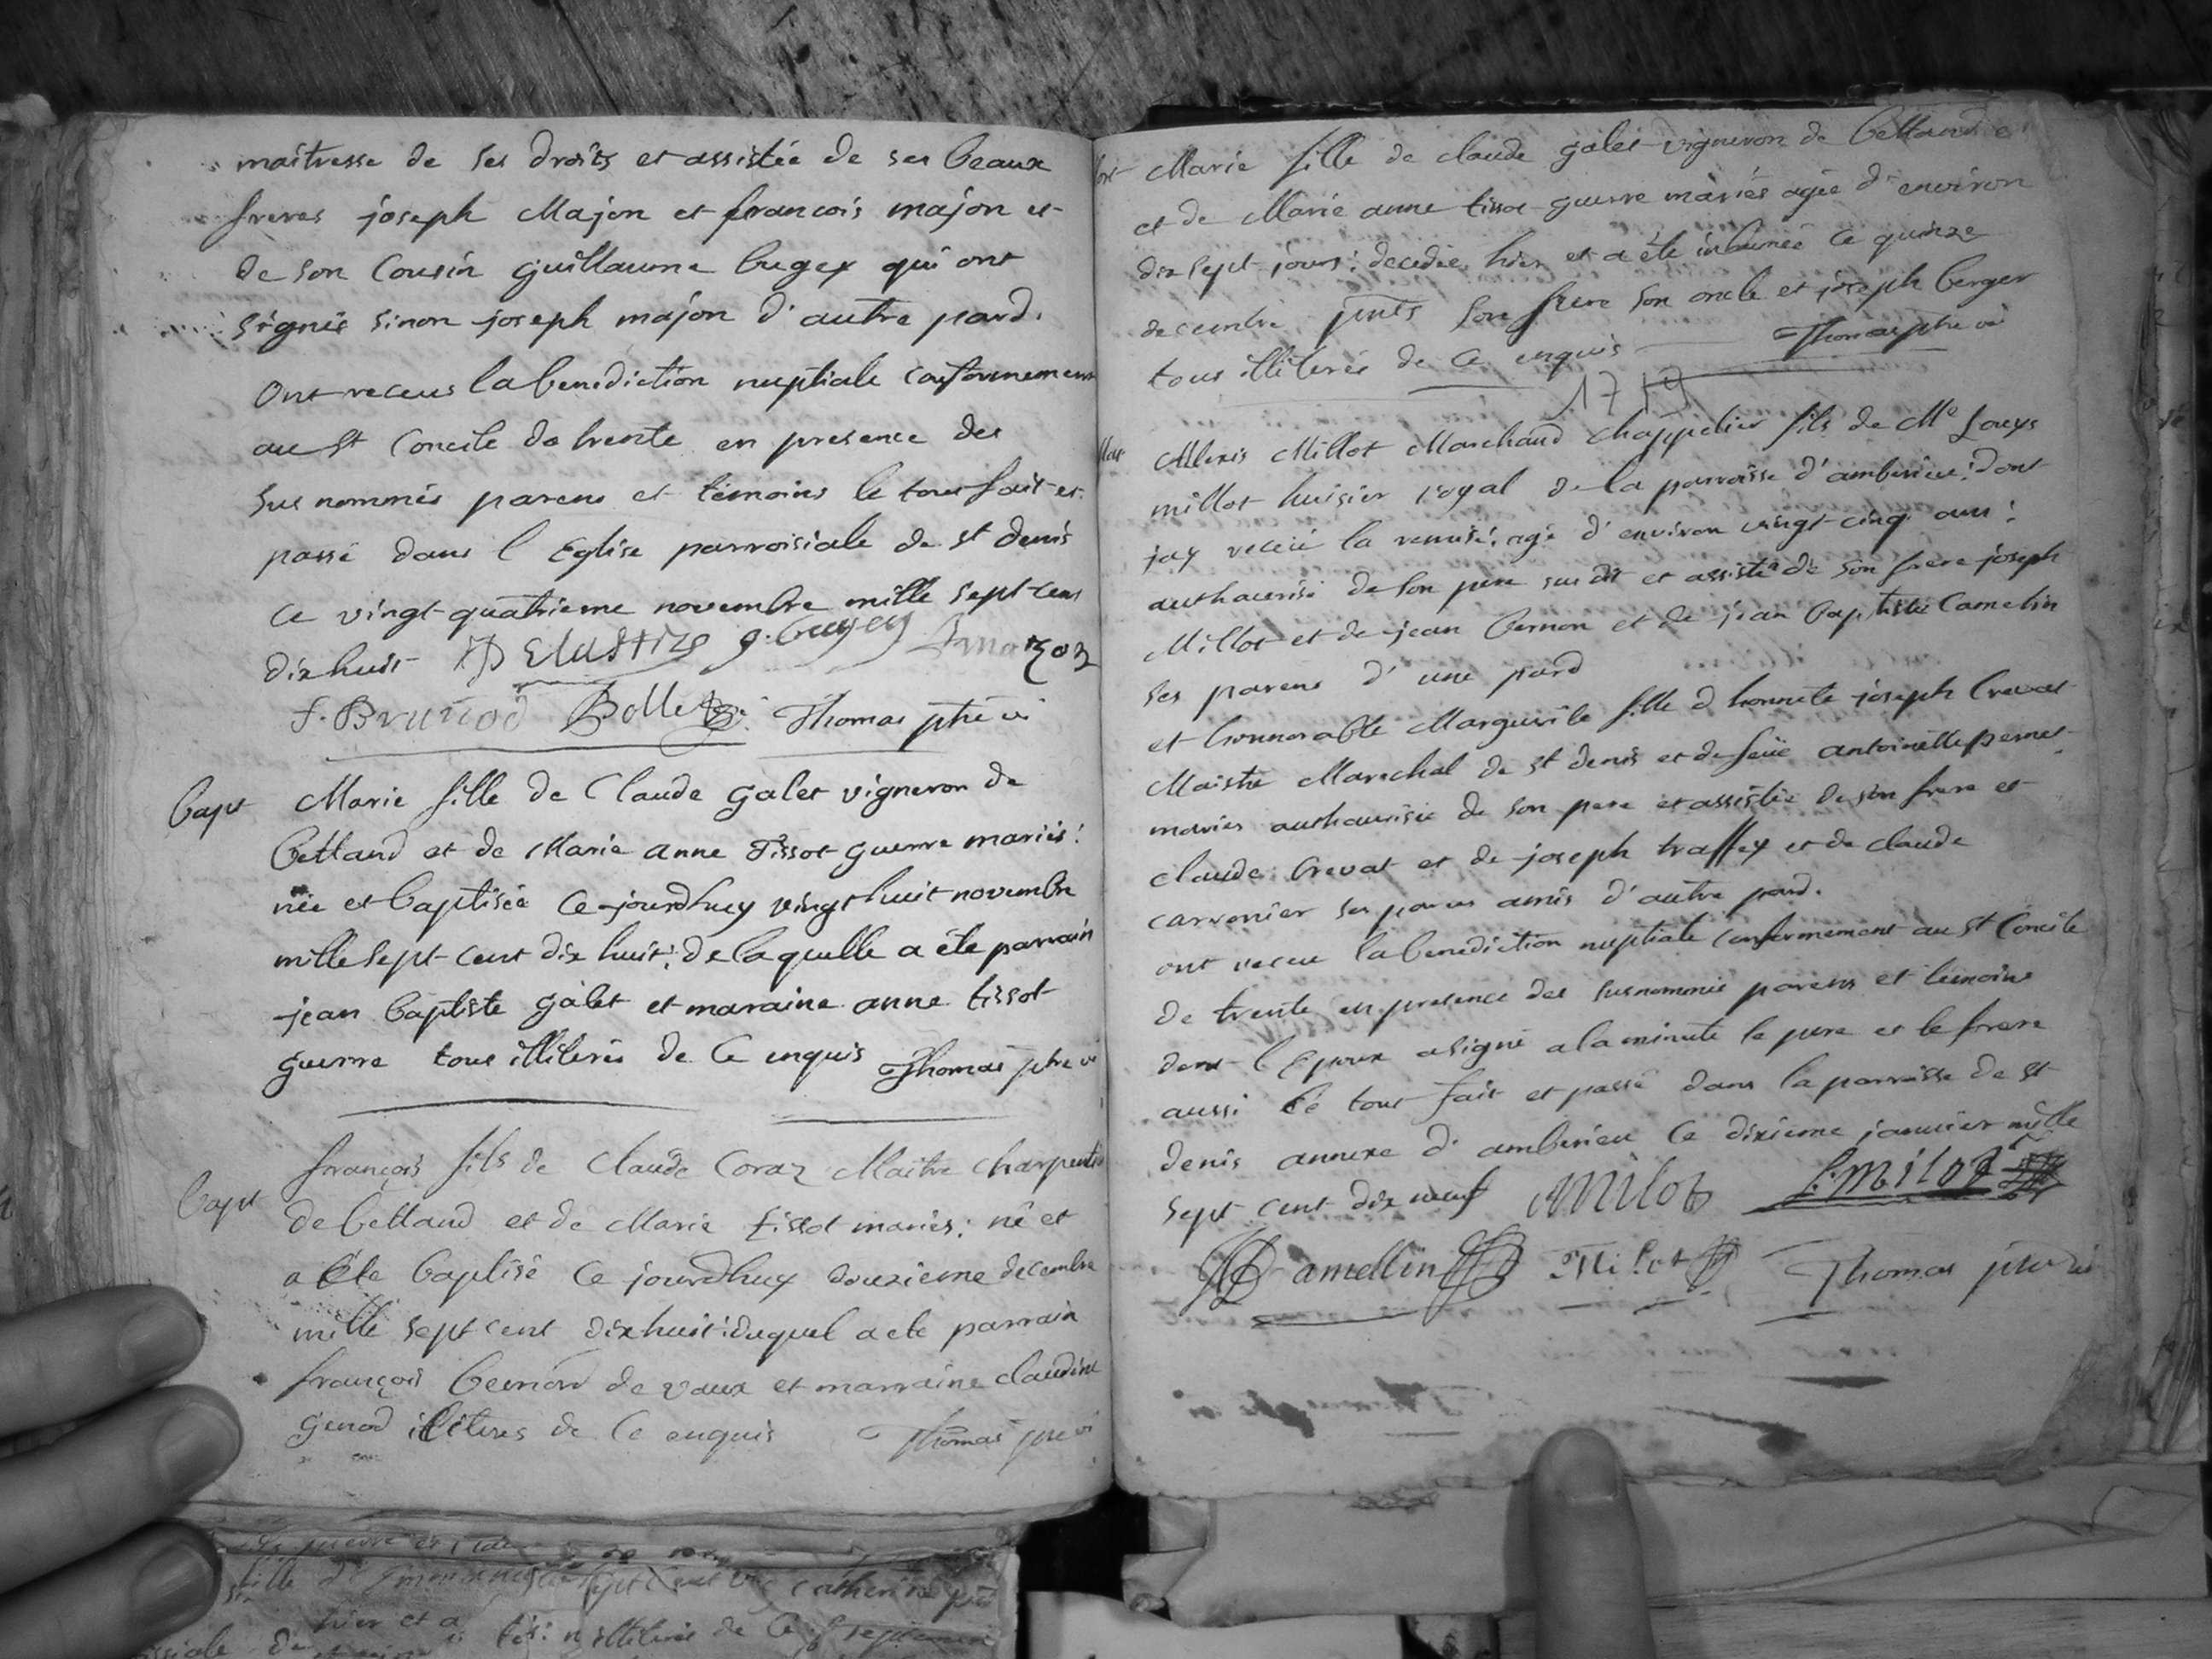 maitresse de ses droits et assistée de ses beaux
freres joseph Majon et francois majon et
de son Cousin guillaume bugey qui ont
signés sinon joseph majon d'autre pard.
Ont receus la benediction nuptiale conformement
au st Concile de trente en presence des
sus nommés parens et témoins le tout fait et
passé dans l Eglise parroisiale de st denis
ce vingt quatrieme novembre mille sept cens
dixhuit g. bugey
f. Brunod Thomas ptre vi
bapt Marie fille de Claude galet vigneron de
bettand et de Marie anne Tissot guerre mariés:
née et baptisée ce jourdhuy vingt huit novembre
mille sept cent dix huit: de laquelle a éte parrain
jean baptiste galet et maraine anne tissot
guerre tous illiterés de ce enquis Thomas ptre vi
bapt françois fils de Claude Coraz Maitre charpentier
de bettand et de Marie tissot mariés: né et
a éte baptisé ce jourdhuy douzieme decembre
mille sept cent dixhuit: duquel a ete parrain
françois de vaux et marraine claudine
genod illiteres de ce enquis Thomas ptre vi
Marie fille de claude galet vigneron de bettand
et de Marie anne tissot guerre mariés agée d'environ
dix sept jours: decedée hier et a éte inhumée ce quinze
decembre son frere son oncle et joseph berger
tous illiterés de ce enquis Thomas ptre vi
1719
Mar Alexis Millot Marchand Chappelier fils de Me Louys
millot huisier royal de la parroisse d'amberieu: dont
jay receu la remise: agé d'environ vingt cinq ans:
authaurisé de son pere sus dit et assisté de son frere joseph
Millot et de jean bernon et de jean baptiste Camelin
ses parens d'une pard
et honnorable Marguerite fille d honnete joseph Crevat
Maistre Marechal de st denis et de feüe antoinette pernet
mariés authaurisée de son pere et assistée de son frere et
claude Crevat et de joseph traffey et de claude
carronier ses parens amis d'autre pard.
ont receu la benediction nuptiale conformement au st Concile
de trente en presence des susnommés parens et témoins
dont l'Epoux a signé a la minute le pere et le frere
aussi le tout fait et passé dans la parroisse de st
denis annexe d'amberieu ce dixieme janvier mille
sept cent dix neuf AMilot L. Milot
Camellin Milot Thomas ptre vi